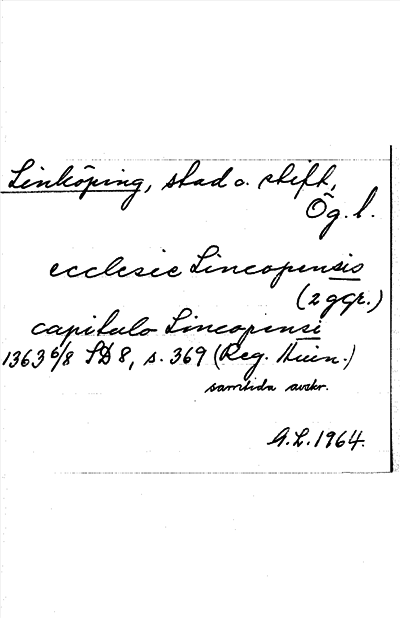 Linköping, stad o. stift,
Ög. l.
ecclesie Lincopensis
(2 ggr.)
capitulo Lincopensi
1363 6/8 SD 8, s. 369 (Reg.
samtida avskr.
G.L. 1964.